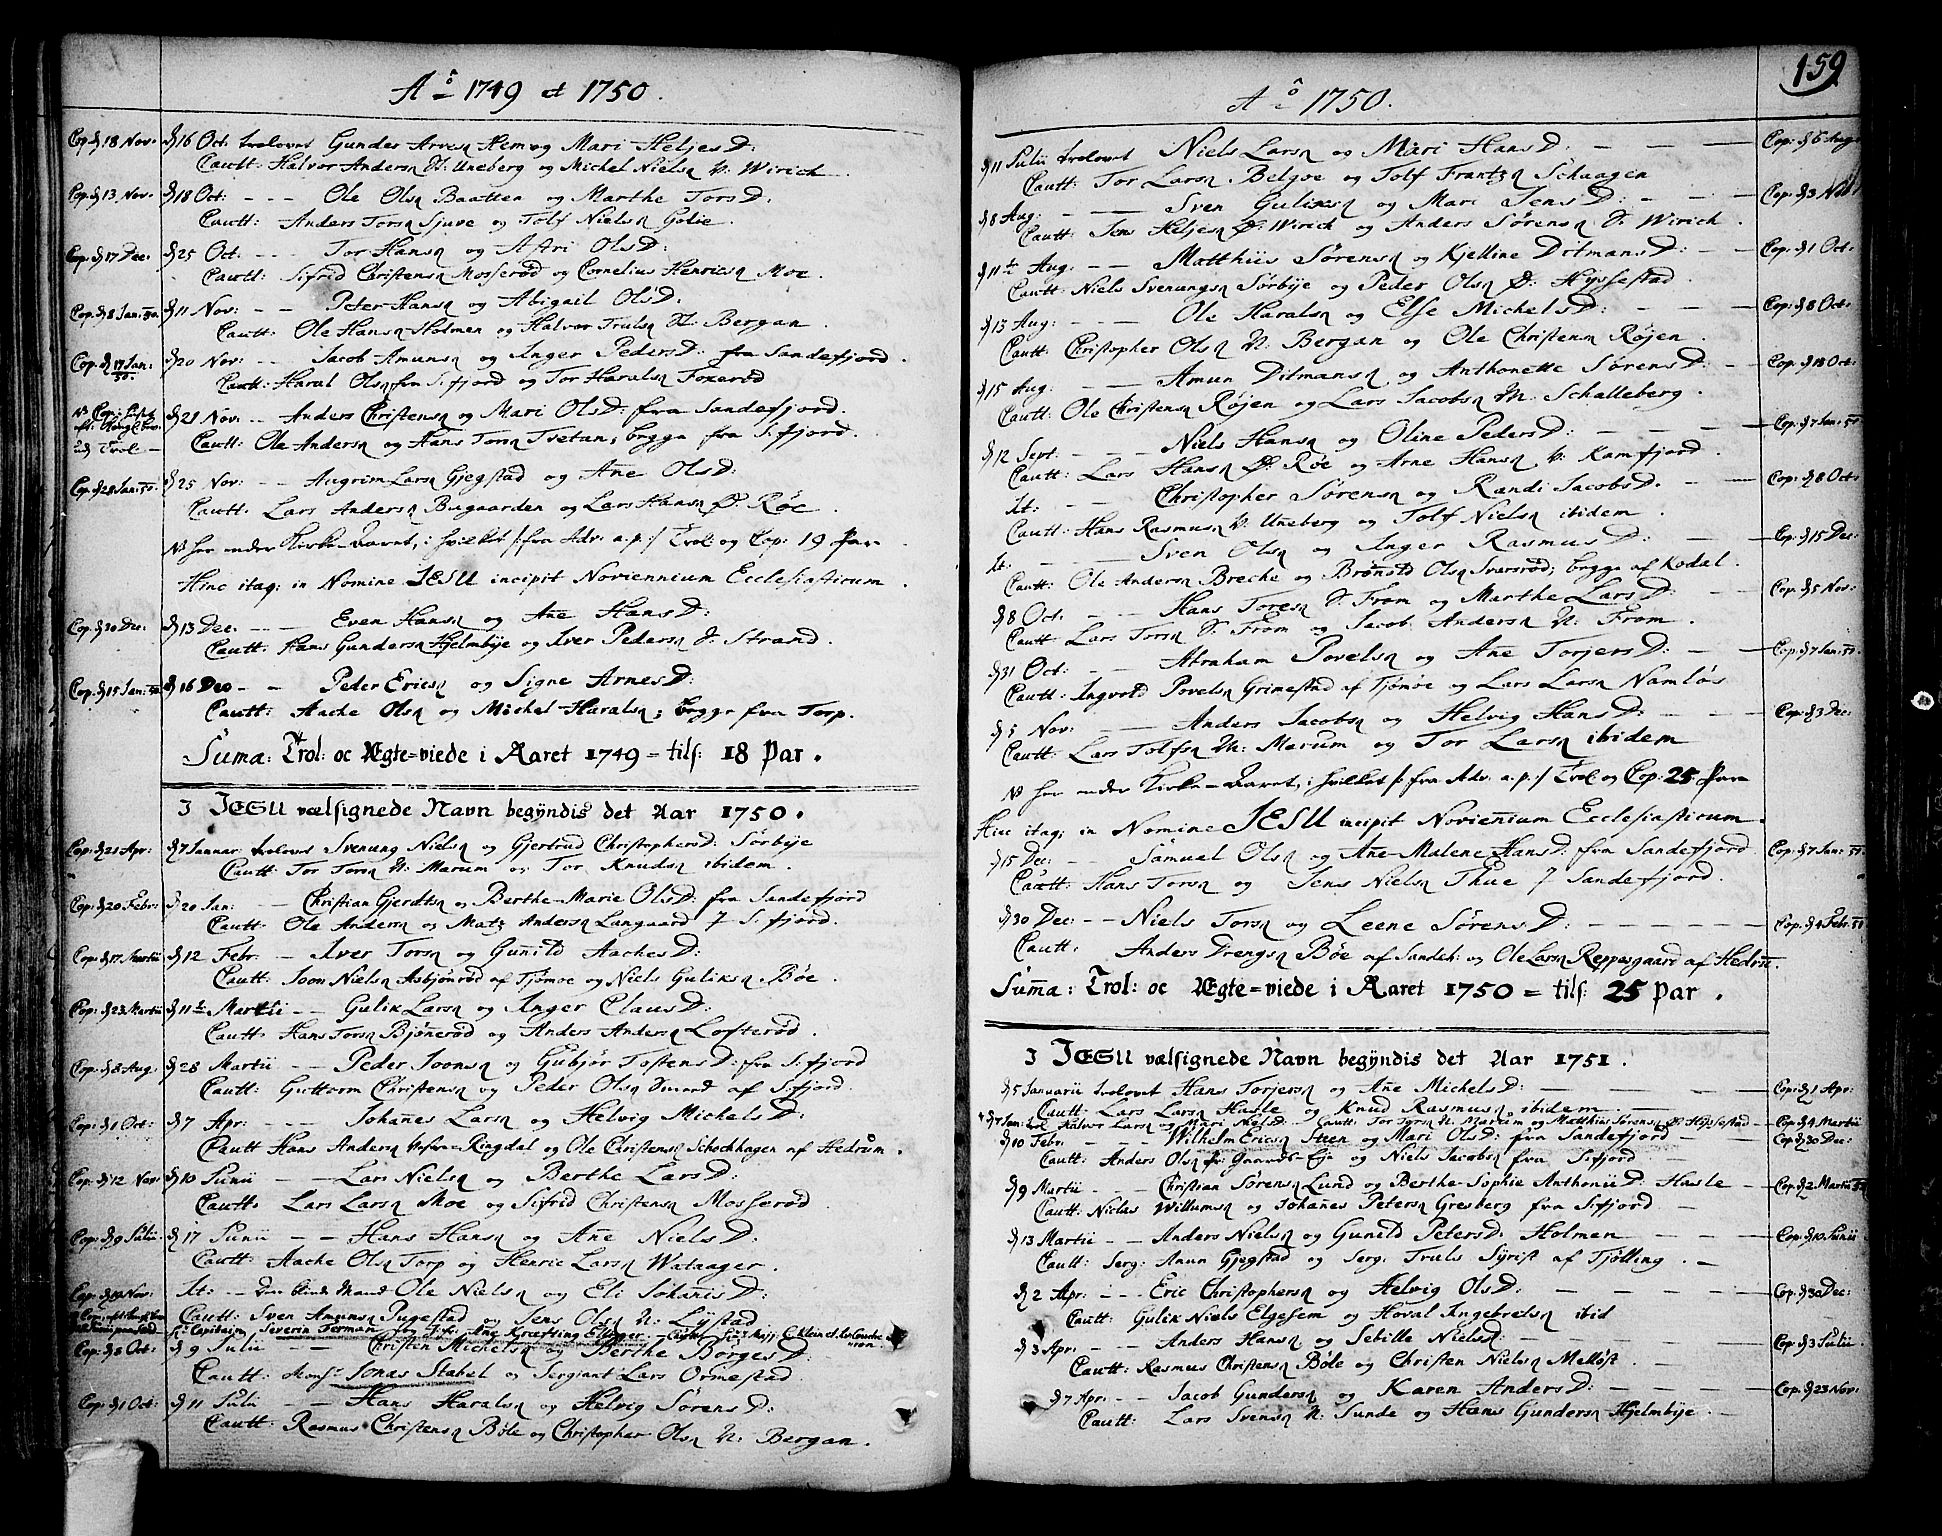 Aô 1749 et 1750.
Cop. d 18 Nov. d 16 Oct. trolovet Gunder Arvesn Hem og Mari HeljesD:
Cautt: Halvor Andersn N: Uneberg og Michel Nielsn N: Wirich
Cop. d 13 Nov. d 18 Oct: - - - Ole Olsn Baatten og Marthe TorsD.
Cautt: Anders Torsn Sjuve og Tolf Nielsn Golie.
Cop. d 17 Dec. d 25 Oct: - - Tor Hansn og OlsD:
Cautt: Sifrid Christensn Mosserød og Cornelius Henricsn Moe.
Cop. d 8 Jan: 50. d 11 Nov: - - Peter Hansn og Abigail OlsD.
Cautt: Ole Hansn Holmen og Halvor Trulsn N: Bergan.
Cop. d 17 Jan: 50. d 20 Nov: - - Jacob Amunsn og Inger PedersD: fra Sandefjord.
Cautt: Haral Olsn fra S:fjord og Tor Haralsn Foxerød
d 21 Nov: - - Anders Christensn og Mari OlsD: fra Sandefjord.
Cautt: Ole Andersn og Hans Torsn Tvetan; begge fra S:fjord.
Cop. d 28 Jan: 50. d 25 Nov: - - Augrim Larsn Gjegstad og Ane OlsD:
Cautt: Lars Andersn Bugaarden og Lars Hansn Ø: Røe.
NB her ender Kirke-Aaret, i hvilket /: fra Adv: a.p :/ Trol: og Cop: 19 Par
Hinc itaq; in Nomine JESU incipit Noviennium Ecclesiasticum
Cop. d 30 Dec: d 13 Dec. - - Even Hansn og Ane HansD:
Cautt: Hans Gundersn Hjelmbye og Iver Pedersn S: Strand.
Cop. d 15 Jan: 50. d 16 Dec - - Peder Ericsn og Signe ArnesD:
Cautt: Aache Olsn og Michel Haralsn; begge fra Torp.
Suma: Trol: oc Ægte=viede i Aaret 1749 = tils: 18 Par.
I JESU vælsignede Navn begÿndis det Aar 1750.
Cop. d 21 Apr: d 7 Januar: trolovet Svenung Nielsn og Gjertrud ChristophersD: Sørbÿe
Cautt: Tor Torsn N: Marum og Tor Knudsn ibidem.
Cop. d 20 Febr: d 20 Jan: - Christian Gerdtsn og Berthe-Marie OlsD: fra Sandefjord
Cautt: Ole Andersn og Matz Andersn Langaard 7 S:fjord.
Cop: d 17 Martii d 12 Febr. - Iver Torsn og Gunild AachesD:
Cautt: Joon Nielsn Asbjønrød af Tjømoe og Niels Guliksn Bøe.
Cop: d 23 Martii d 11te Martii - - Gulik Larsn og Inger ClausD:
Cautt: Hans Torsn Bjønerød og Anders Andersn Lofterød.
Cop: d 8 Aug. d 28 Martii - - Peder Joonsn og Gubjør TostensD: fra S:fjord
Cautt: Guttorm Christensn og Peder Olsn Smed af S:fjord.
Cop: d 1 Oct: d 7 Apr: - - Johanes Larsn og Helvig MichelsD:
Cautt Hans Andersn Ringdal og Ole Christensn Schochhagen af Hedrum.
Cop: d 12 Nov: d 10 Junii - - Lars Nielsn og Berthe LarsD:
Cautt. Lars Larsn Moe og Sifrid Christensn Mosserød
Cop. d 9 Julii d 17 Junii - - Hans Hansn og Ane NielsD:
Cautt: Aache Olsn Torp og Henric Larsn Wataager.
It: - - Den blinde Mand Ole Nielsn og Eli JohanisD:
Cautt: Sven Amunsn Pugestad og Jens Olsn N: Lÿstad
Capitajn Severin Terman og Ane Kræfting Ellinger
Cop: d 8 Oct: d 9 Julii - - Christen Michelsn og Berthe BørgesD:
Cautt: Mons: Jonas Stabel og Sergiant Lars Ormestad
Cop: d 1 Oct: d 11 Julii - - Hans Haralsn og Helvig SørensD:
Cautt: Rasmus Christensn Bøle og Christopher Olsn N: Bergan.
Aô 1750. 159
d 11 Julii trolovet Niels Larsn og Mari HansD: - - - Cop: d 6 Aug
Cautt: Tor Larsn Belgoe og Tolf Frantzn Schaagen
d 8 Aug: - - Sven Guliksn og Mari JensD: - - - Cop: d 3 Nov
Cautt: Jens Heljesn Ø: Wirich og Anders Sørensn S: Wirich.
d 11te Aug: - - Matthiis Sørensn og Kjelline DitmansD: - - Cop: d 1 Oct:
Cautt: Niels Svenungsn Sørbÿe og Peder Olsn Ø: Hÿssestad.
d 13 Aug: - - - Ole Haralsn og Else MichelsD: - - - Cop: d 8 Oct:
Cautt: Christopher Olsn N: Bergan og Ole Christensn Røjen.
d 15 Aug: - - Amun Ditmansn og Anthonette SørensD: - - Cop: d 18 Oct:
Cautt: Ole Christensn Røjen og Lars Jacobsn N: Schalleberg.
d 12 Sept: - - Niels Hansn og Oline PedersD: - - - Cop: d 7 Jan: 51
Cautt: Lars Hansn Ø: Røe og Arne Hansn V: Kamfjord.
It: - - Christopher Sørensn og Randi JacobsD. - - Cop: d 8 Oct:
Cautt: Hans Rasmusn V: Uneberg og Tolf Nielsn ibidem.
It. - - Sven Olsn og Inger RasmusD: - - Cop: d 15 Dec:
Cautt: Ole Andersn Breche og Brønild Olsn Svarsrød; begge af Kodal.
d 8 Oct: - - Hans Toresn S: From og Marthe LarsD: - Cop: d 5 Nov:
Cautt: Lars Torsn S: From og Jacob Andersn N: From.
d 31 Oct: - - Abraham Povelsn og Ane TorjersD: - - Cop: d 7 Jan: 51.
Cautt: Ingvold Povelsn Grimestad af Tjømøe og Lars Larsn Namløs
d 5 Nov: - - Anders Jacobsn og Helvig HansD: - - - Cop: d 3 Dec:
Cautt: Lars Tolfsn N: Marum og Tor Larsn ibidem
NB her ender Kirke-Aaret, i hvilket /: fra Adv: a.p :/ Trol: og Cop: 25 Par
Hinc itaq; in Nomine JESU incipit Noviennium Ecclesiasticum.
d 15 Dec: - Samuel Olsn og Ane-Malene HansD: fra Sandefjord Cop: d 7 Jan: 51.
Cautt: Hans Torsn og Jens Nielsn Thue 7 Sandefjord.
d 30 Dec: - - Niels Torsn og Leene SørensD: - - - - - Cop: d 4 Febr: 51
Cautt: Anders Drengsn Bøe af Sandeh: og Ole Larsn Reppesgaard af Hedrum.
Suma: Trol: oc Ægte=viede i Aaret 1750 = tils: 25 Par.
I JESU vælsignede Navn begÿndis det Aar 1751.
d 5 Januarii trolovet Hans Torjersn og Ane MichelsD: - - - Cop: d 1 Apr:
Cautt: Lars Larsn Hasle og Knud Rasmusn ibidem.
d 7 Jan: trol Halvor Larsn og Mari NielsD: Cautt: Tor Torsn N: Marum og Matthiis Sørensn Ø: Hÿssestad - Cop: d 4 Martii
d 10 Febr. - - Wilhelm Ericsn Steen og Mari OlsD: fra Sandefjord - - Cop: d 30 Dec:
Cautt: Anders Olsn og Niels Jacobsn fra S:fjord
d 9 Martii - - Christian Sørensn Lund og Berthe-Sophie AnthoniiD: Hasle - Cop: d 2 Martii 52
Cautt: Niclas Willumsn og Johanes Petersn Gresberg fra S:fjord -
d 13 Martii - - Anders Nielsn og Gunild PetersD: Holmen - - Cop: d 10 Junii
Cautt: Serg: Amun Gjegstad og Serg: Truls Sÿrist af Tjølling. -
d 2 Apr: - - Eric Christophersn og Helvig OlsD: - - - Cop: d 30 Dec:
Cautt: Gulik Niels Elgesem og Hoval Ingebretsn ibid
d 3 Apr: - - Anders Hansn og Sebille NielsD: - - - Cop: d 3 Julii
Cautt: Rasmus Christensn Bøle og Christen Nielsn Melløst.
d 7 Apr: - - Jacob Gundersn og Karen AndersD: - - - Cop: d 23 Nov:
Cautt: Lars Svensn N: Sunde og Hans Gundersn Hjelmbÿe. -